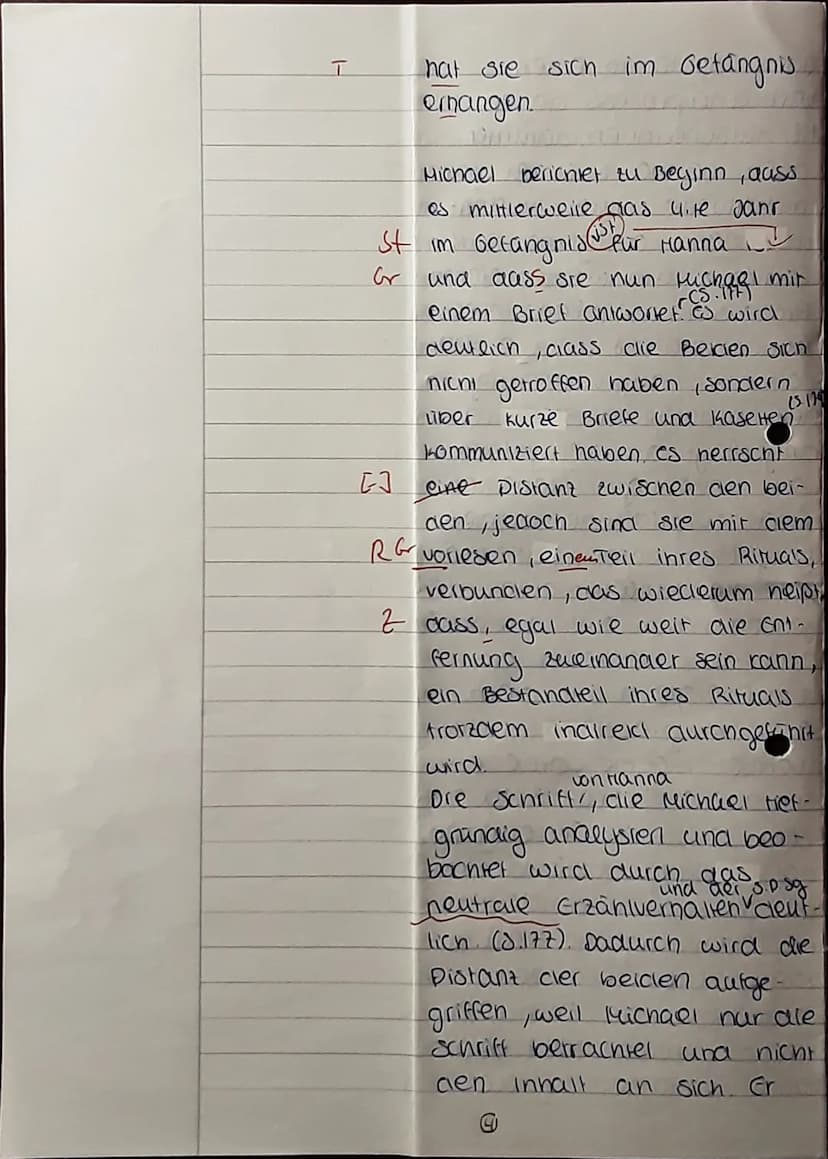 T hat sie sich im Gefängnis
erhangen.
Michael berichtet zu Beginn, dass
es mittlerweile das 4.te Jahr
St im Gefängnis ist für Hanna
Gr und dass sie nun Michael mit
einem Brief antwortet (S.177). Es wird
deutlich, dass die Beiden sich
nicht getroffen haben, sondern
über kurze Briefe und Kasetten
kommuniziert haben, es herrscht
[-] eine Distanz zwischen den bei-
den, jedoch sind sie mit dem
R Gr vorlesen, einen Teil ihres Rituals,
verbunden, das wiederum heißt
Z dass, egal wie weit die Ent-
fernung zueinander sein kann,
ein Bestandteil ihres Rituals
trotzdem indirekt durchgeführt
wird.
Die Schrift von Hanna, die Michael tief-
gründig analysiert und beo-
bachtet wird durch das
neutrale Erzählverhalten und der deut-
lich (S.177). Dadurch wird die
Distanz der beiden aufge-
griffen, weil Michael nur die
Schrift betrachtet und nicht
den Inhalt an sich. Er
4